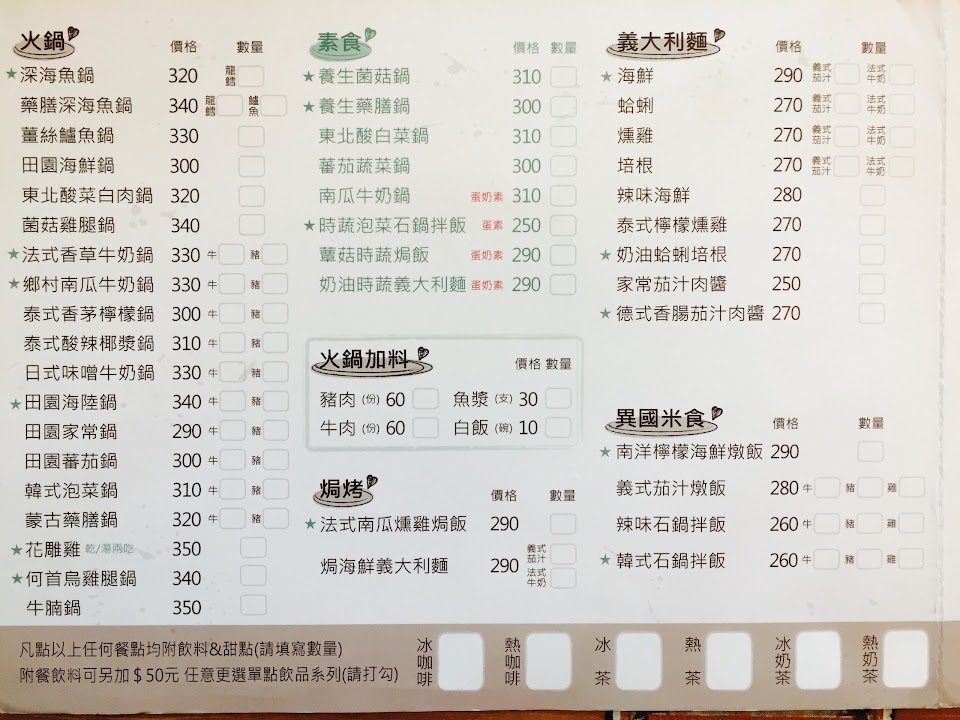 火鍋 價格 數量
★深海魚鍋 320 龍鱈
藥膳深海魚鍋 340 龍鱈 鱸魚
薑絲鱸魚鍋 330
田園海鮮鍋 300
東北酸菜白肉鍋 320
菌菇雞腿鍋 340
★法式香草牛奶鍋 330 牛 豬
★鄉村南瓜牛奶鍋 330 牛 豬
泰式香茅檸檬鍋 300 牛 豬
泰式酸辣椰漿鍋 310 牛 豬
日式味噌牛奶鍋 330 牛 豬
★田園海陸鍋 340 牛 豬
田園家常鍋 290 牛 豬
田園蕃茄鍋 300 牛 豬
韓式泡菜鍋 310 牛 豬
蒙古藥膳鍋 320 牛 豬
★花雕雞 乾/湯兩吃 350
★何首烏雞腿鍋 340
牛腩鍋 350
素食 價格 數量
★養生菌菇鍋 310
★養生藥膳鍋 300
東北酸白菜鍋 310
蕃茄蔬菜鍋 300
南瓜牛奶鍋 蛋奶素 310
★時蔬泡菜石鍋拌飯 蛋素 250
蕈菇時蔬焗飯 蛋奶素 290
奶油時蔬義大利麵 蛋奶素 290
火鍋加料 價格 數量
豬肉(份) 60 魚漿(支) 30
牛肉(份) 60 白飯(碗) 10
焗烤 價格 數量
★法式南瓜燻雞焗飯 290
焗海鮮義大利麵 290 義式茄汁 法式牛奶
義大利麵 價格 數量
★海鮮 290 義式茄汁 法式牛奶
蛤蜊 270 義式茄汁 法式牛奶
燻雞 270 義式茄汁 法式牛奶
培根 270 義式茄汁 法式牛奶
辣味海鮮 280
泰式檸檬燻雞 270
★奶油蛤蜊培根 270
家常茄汁肉醬 250
★德式香腸茄汁肉醬 270
異國米食 價格 數量
★南洋檸檬海鮮燉飯 290
義式茄汁燉飯 280 牛 豬 雞
辣味石鍋拌飯 260 牛 豬 雞
★韓式石鍋拌飯 260 牛 豬 雞
凡點以上任何餐點均附飲料&甜點(請填寫數量)
附餐飲料可另加＄50元 任意更選單點飲品系列(請打勾)
冰咖啡 熱咖啡 冰茶 熱茶 冰奶茶 熱奶茶